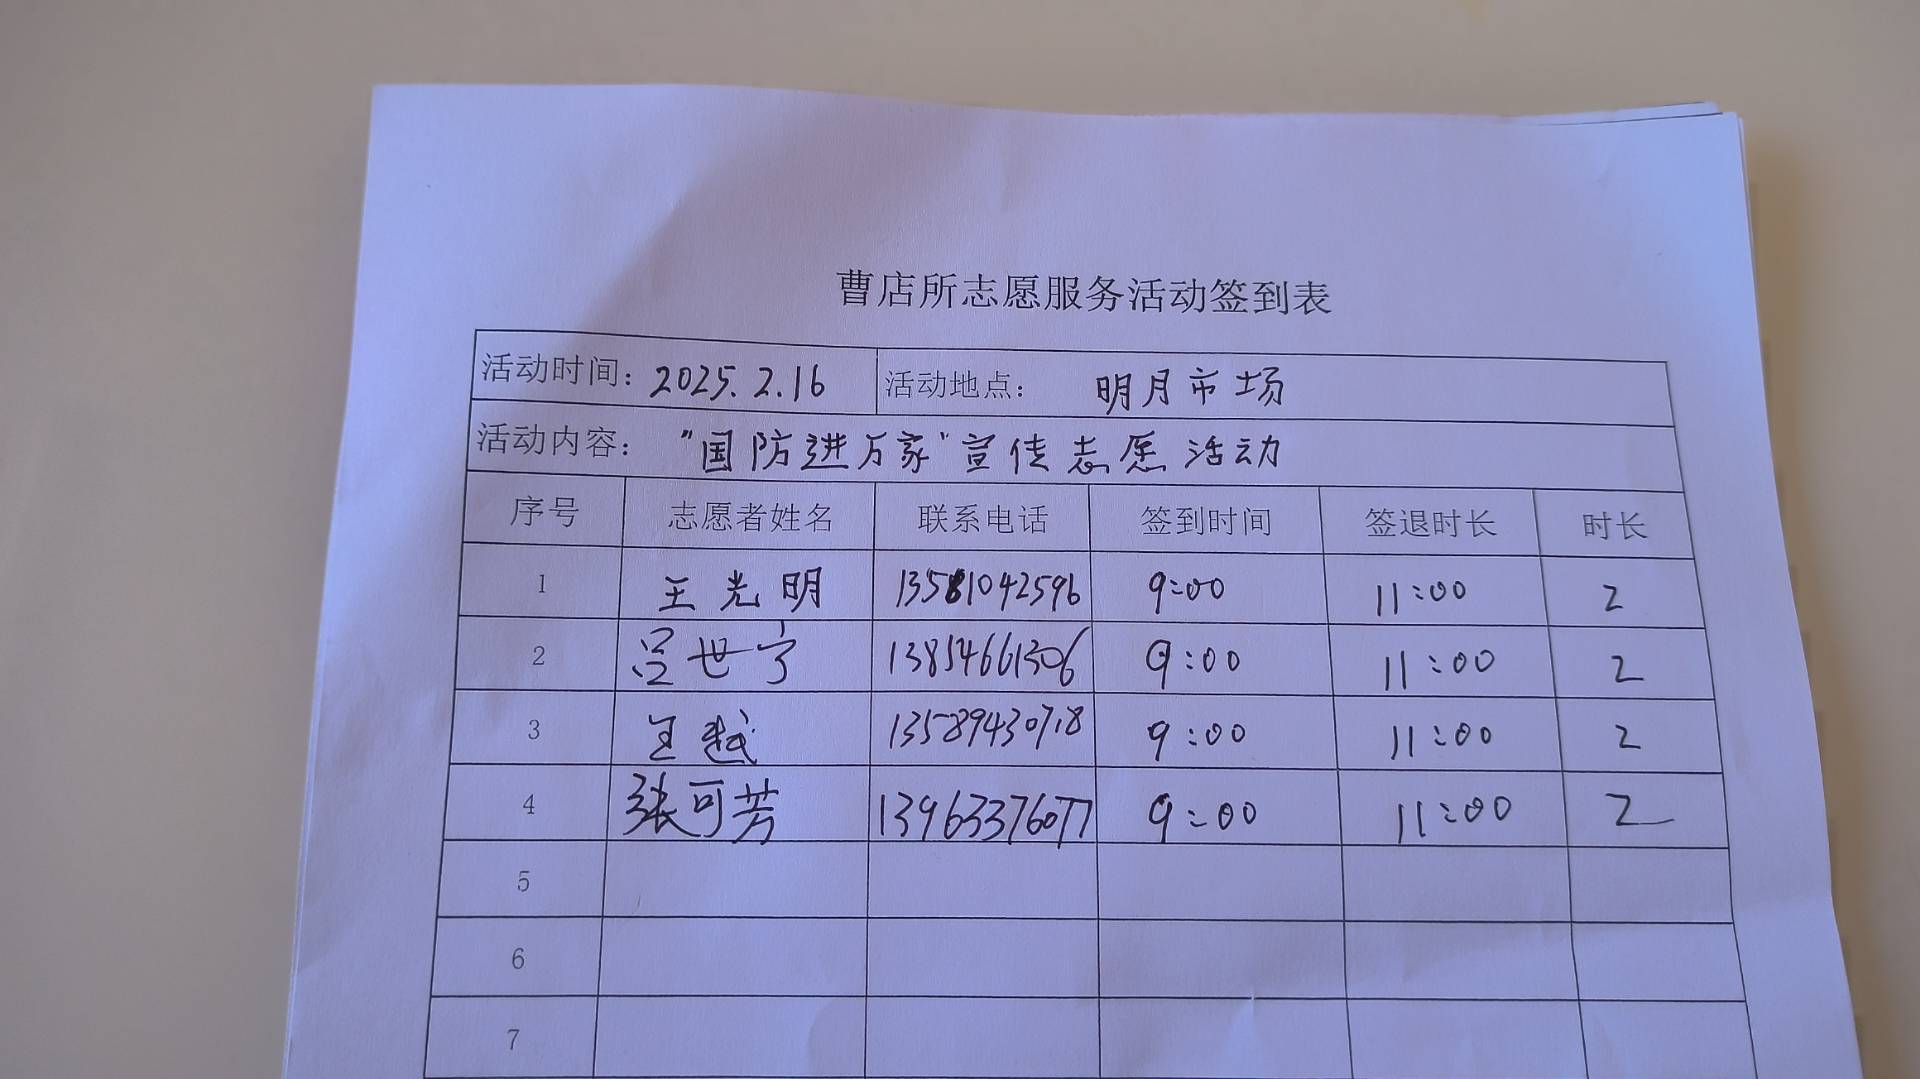 曹店所志愿服务活动签到表
活动时间: 2025.2.16 活动地点: 明月市场
活动内容: "国防进万家"宣传志愿活动
序号 志愿者姓名 联系电话 签到时间 签退时长 时长
1 王光明 13581042596 9:00 11:00 2
2 吕世宁 13854661306 9:00 11:00 2
3 王越 13589430718 9:00 11:00 2
4 张可芳 13963376077 9:00 11:00 2
5
6
7